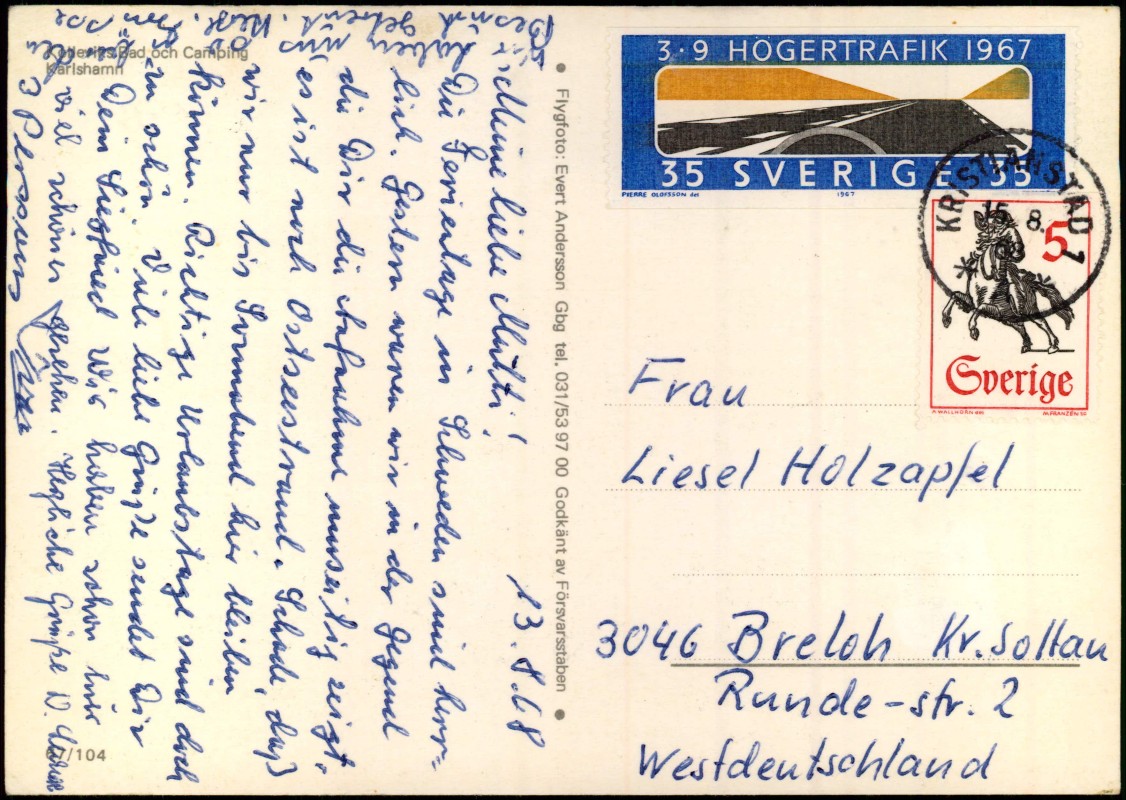 Kolleviks Bad och Camping
Karlshamn
Flygfoto: Evert Andersson Gbg tel. 031/53 97 00 Godkänt av Försvarsstaben
67/104
13. 8. 68
Meine liebe Mutti!
Die Ferientage in Schweden sind herr-
lich. Gestern waren wir in der Gegend
die Dir die Aufnahme umseitig zeigt.
(es ist noch Ostseestrand. Schade, daß
wir nur bis Sonnabend hier bleiben
können. Richtige Urlaubstage sind doch
zu schön. Viele liebe Grüße sendet Dir
Dein Siegfried Wir haben schon
viel schönes gesehen. Herzliche Grüße
3 · 9 HÖGERTRAFIK 1967
35 SVERIGE 35
PIERRE OLOFSSON det 1967
KRISTIANSTAD 1
15. 8. 68
5
Sverige
A. WALLHORN del M. FRANZEN sc
Frau
Liesel Holzapfel
3046 Breloh Kr. Soltau
Runde-str. 2
Westdeutschland